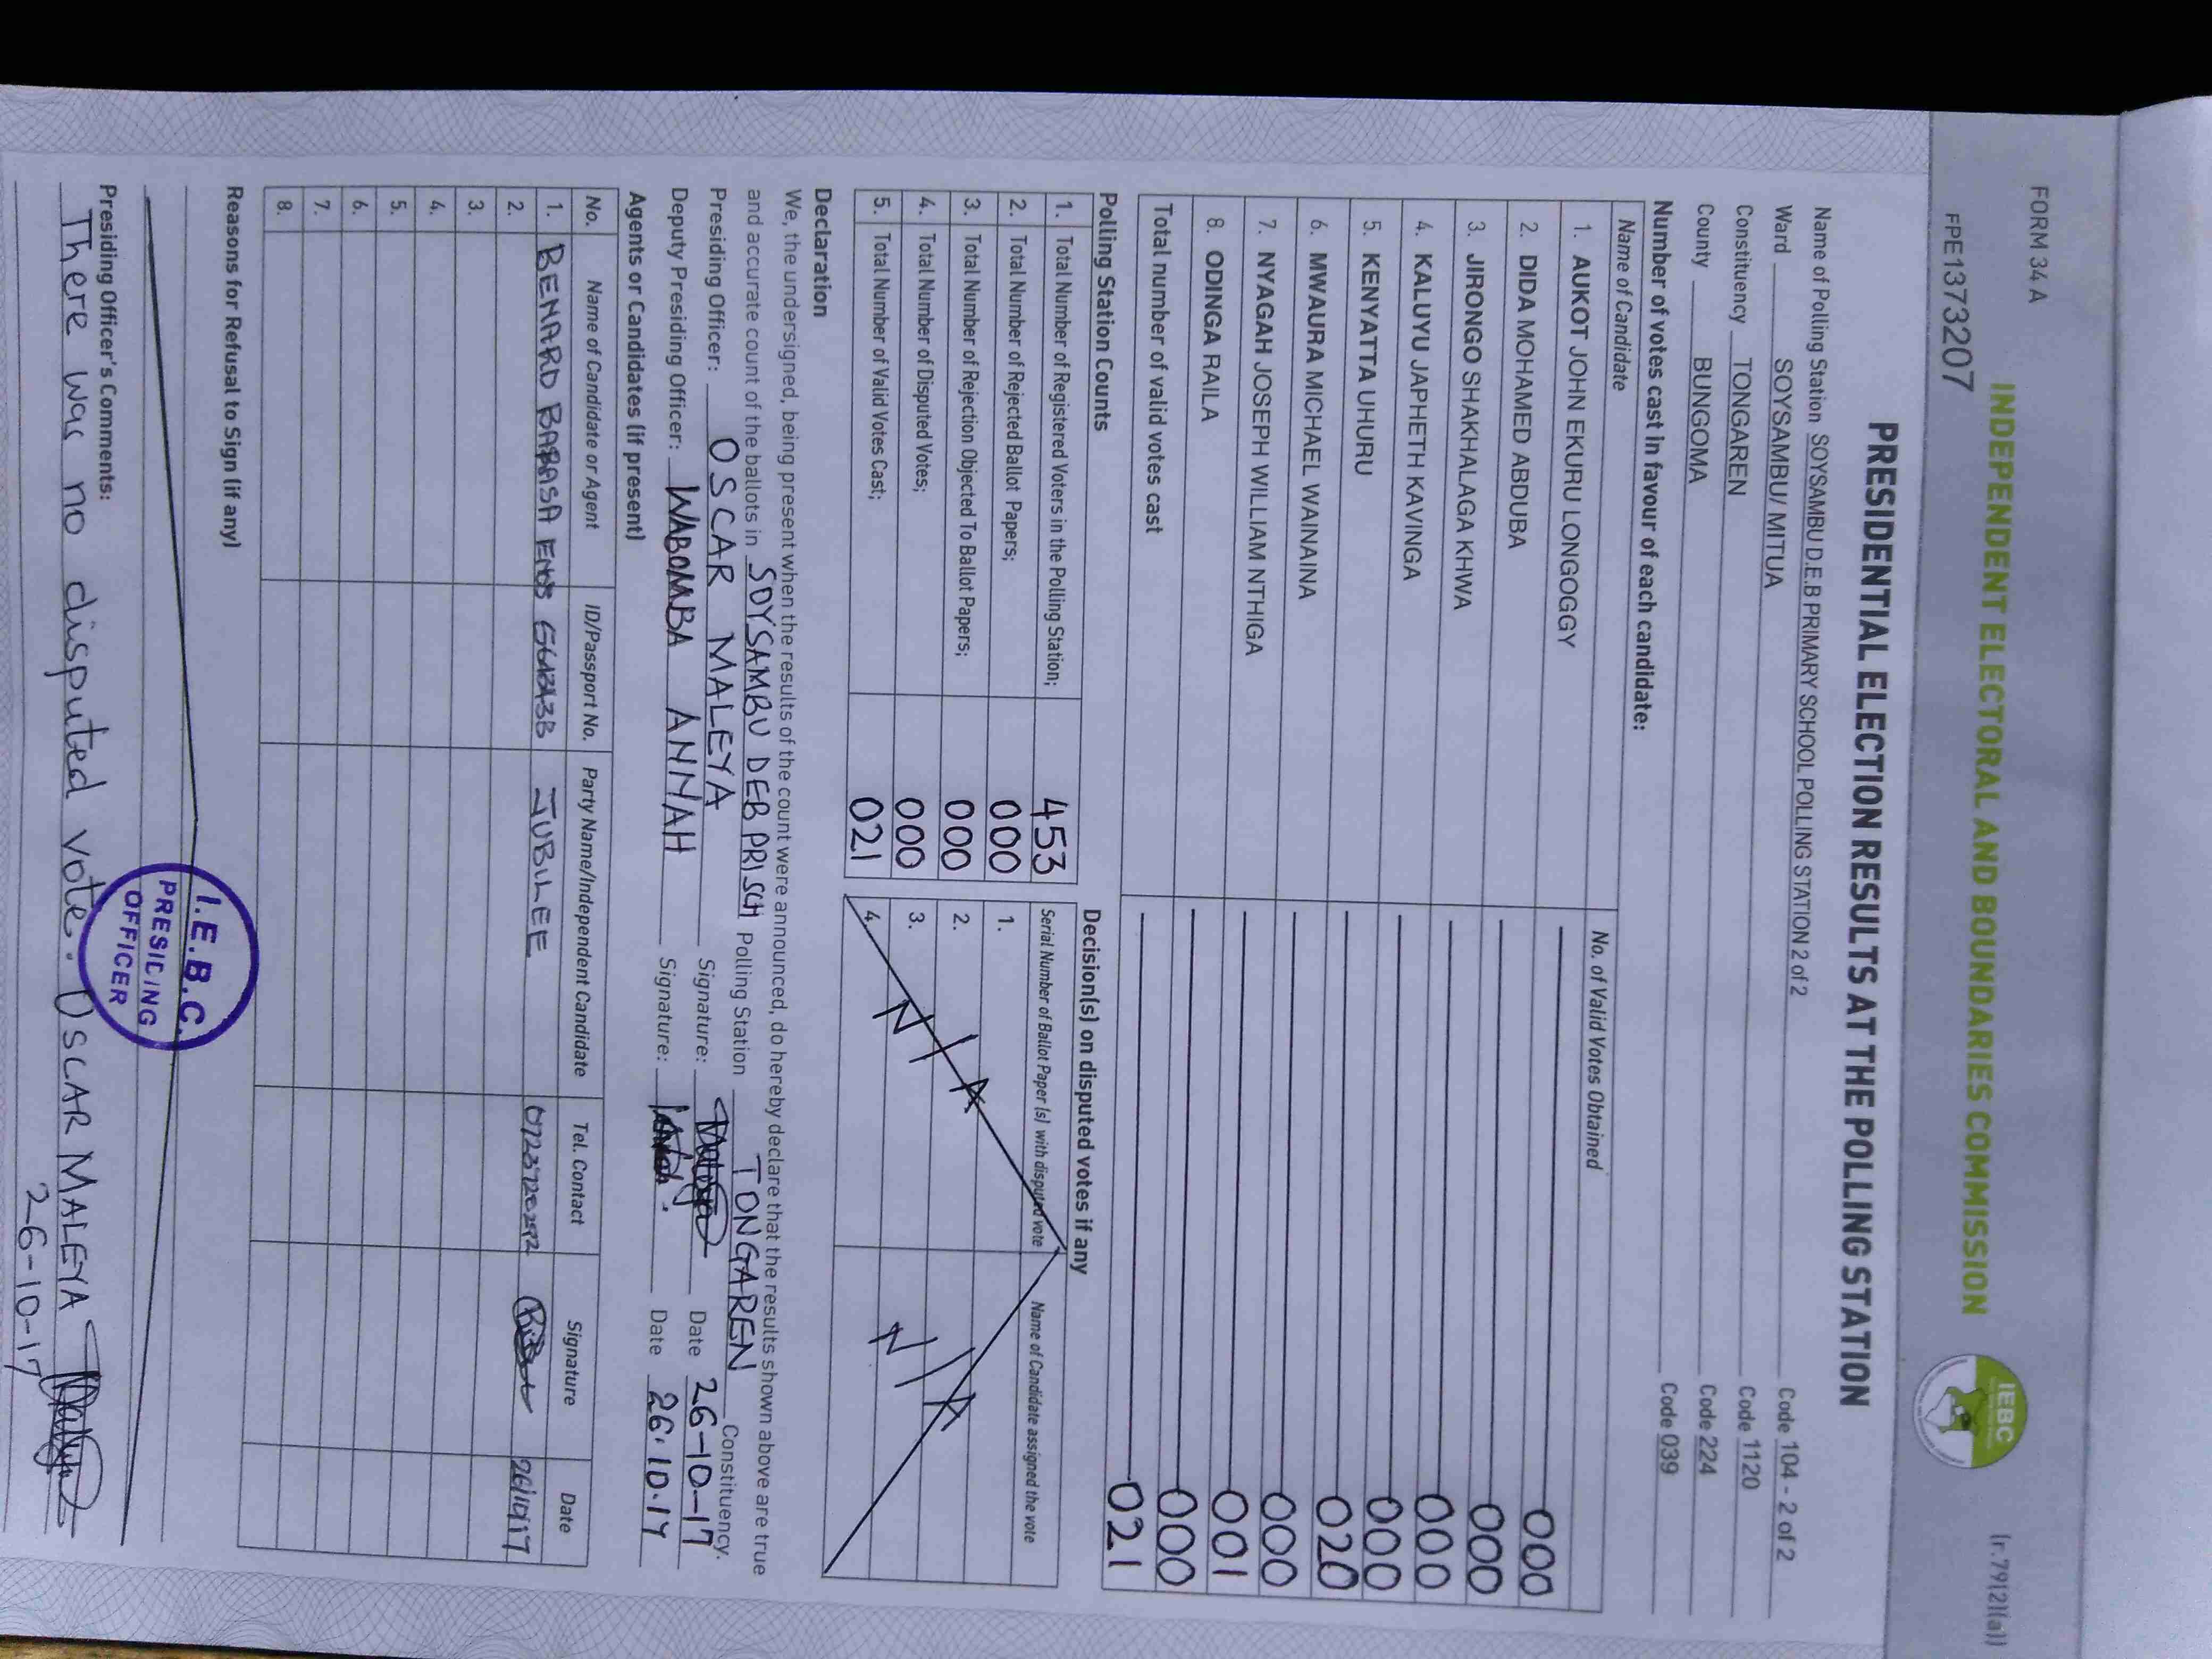 FORM 34 A
(r.79(2)(a))
INDEPENDENT ELECTORAL AND BOUNDARIES COMMISSION
IEBC
FPE1373207
PRESIDENTIAL ELECTION RESULTS AT THE POLLING STATION
Name of Polling Station SOYSAMBU D.E.B PRIMARY SCHOOL POLLING STATION 2 of 2 Code 104 - 2 of 2
Ward SOYSAMBU/ MITUA Code 1120
Constituency TONGAREN Code 224
County BUNGOMA Code 039
Number of votes cast in favour of each candidate:
Name of Candidate No. of Valid Votes Obtained
1. AUKOT JOHN EKURU LONGOGGY 000
2. DIDA MOHAMED ABDUBA 000
3. JIRONGO SHAKHALAGA KHWA 000
4. KALUYU JAPHETH KAVINGA 000
5. KENYATTA UHURU 020
6. MWAURA MICHAEL WAINAINA 000
7. NYAGAH JOSEPH WILLIAM NTHIGA 001
8. ODINGA RAILA 000
Total number of valid votes cast 021
Polling Station Counts
1. Total Number of Registered Voters in the Polling Station; 453
2. Total Number of Rejected Ballot Papers; 000
3. Total Number of Rejection Objected To Ballot Papers; 000
4. Total Number of Disputed Votes; 000
5. Total Number of Valid Votes Cast; 021
Decision(s) on disputed votes if any
Serial Number of Ballot Paper (s) with disputed vote Name of Candidate assigned the vote
1.
2.
3.
4.
N/A N/A
Declaration
We, the undersigned, being present when the results of the count were announced, do hereby declare that the results shown above are true
and accurate count of the ballots in SOYSAMBU DEB PRI SCH Polling Station TONGAREN Constituency.
Presiding Officer: OSCAR MALEYA Signature: Date 26-10-17
Deputy Presiding Officer: WABOMBA ANNAH Signature: Date 26.10.17
Agents or Candidates (if present)
No. Name of Candidate or Agent ID/Passport No. Party Name/Independent Candidate Tel. Contact Signature Date
1. BENARD BARASA JUBILEE 0723720292 26/10/17
2.
3.
4.
5.
6.
7.
8.
Reasons for Refusal to Sign (if any)
I.E.B.C.
PRESIDING
OFFICER
Presiding Officer's Comments:
There was no disputed vote. OSCAR MALEYA
26-10-17